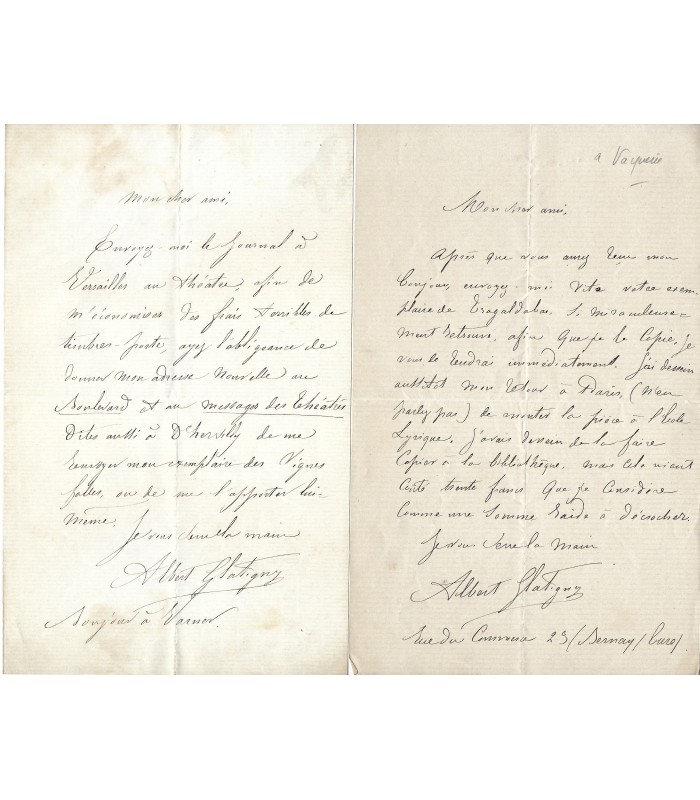 Mon cher ami,
Envoyez-moi le Journal à
Versailles au théâtre, afin de
m'économiser des frais terribles de
timbres-poste, ayez l'obligeance de
donner mon adresse nouvelle au
Boulevard et au messager des théâtres
Dites aussi à D'hervilly de me
renvoyer mon exemplaire des Vignes
folles, ou de me l'apporter lui-
même.
Je vous serre la main
Albert Glatigny
Bonjour à Varner
a Vacquerie
Mon cher ami,
Après que vous aurez reçu mon
bonjour, envoyez-moi vite votre exem-
plaire de Tragaldabas, si miraculeuse-
ment retrouvé, afin que je le copie, je
vous le rendrai immédiatement. J'ai dessein
aussitôt mon retour à Paris, (n'en
parlez pas) de monter la pièce à l'école
Lyrique. J'avais dessein de la faire
copier à la bibliothèque, mais cela vient
cents trente francs que je considère
comme une somme raide à décrocher.
Je vous serre la main
Albert Glatigny
Rue du Commerce 23 (Bernay) Eure)